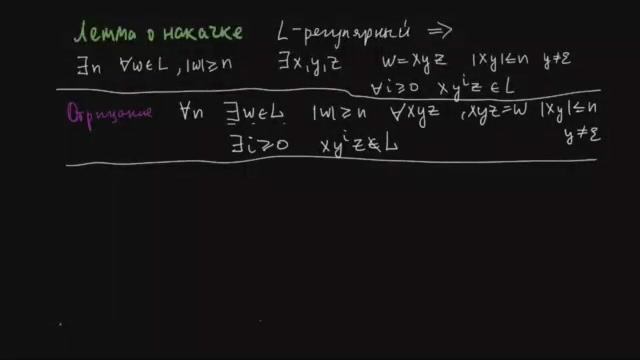 Лемма о накачке L-регулярный ⇒
∃n ∀w∈L, |w|≥n ∃x,y,z w=xyz |xy|≤n y≠ε
∀i≥0 xyⁱz∈L
Отрицание ∀n ∃w∈L |w|≥n ∀xyz, xyz=w |xy|≤n
y≠ε
∃i≥0 xyⁱz∉L